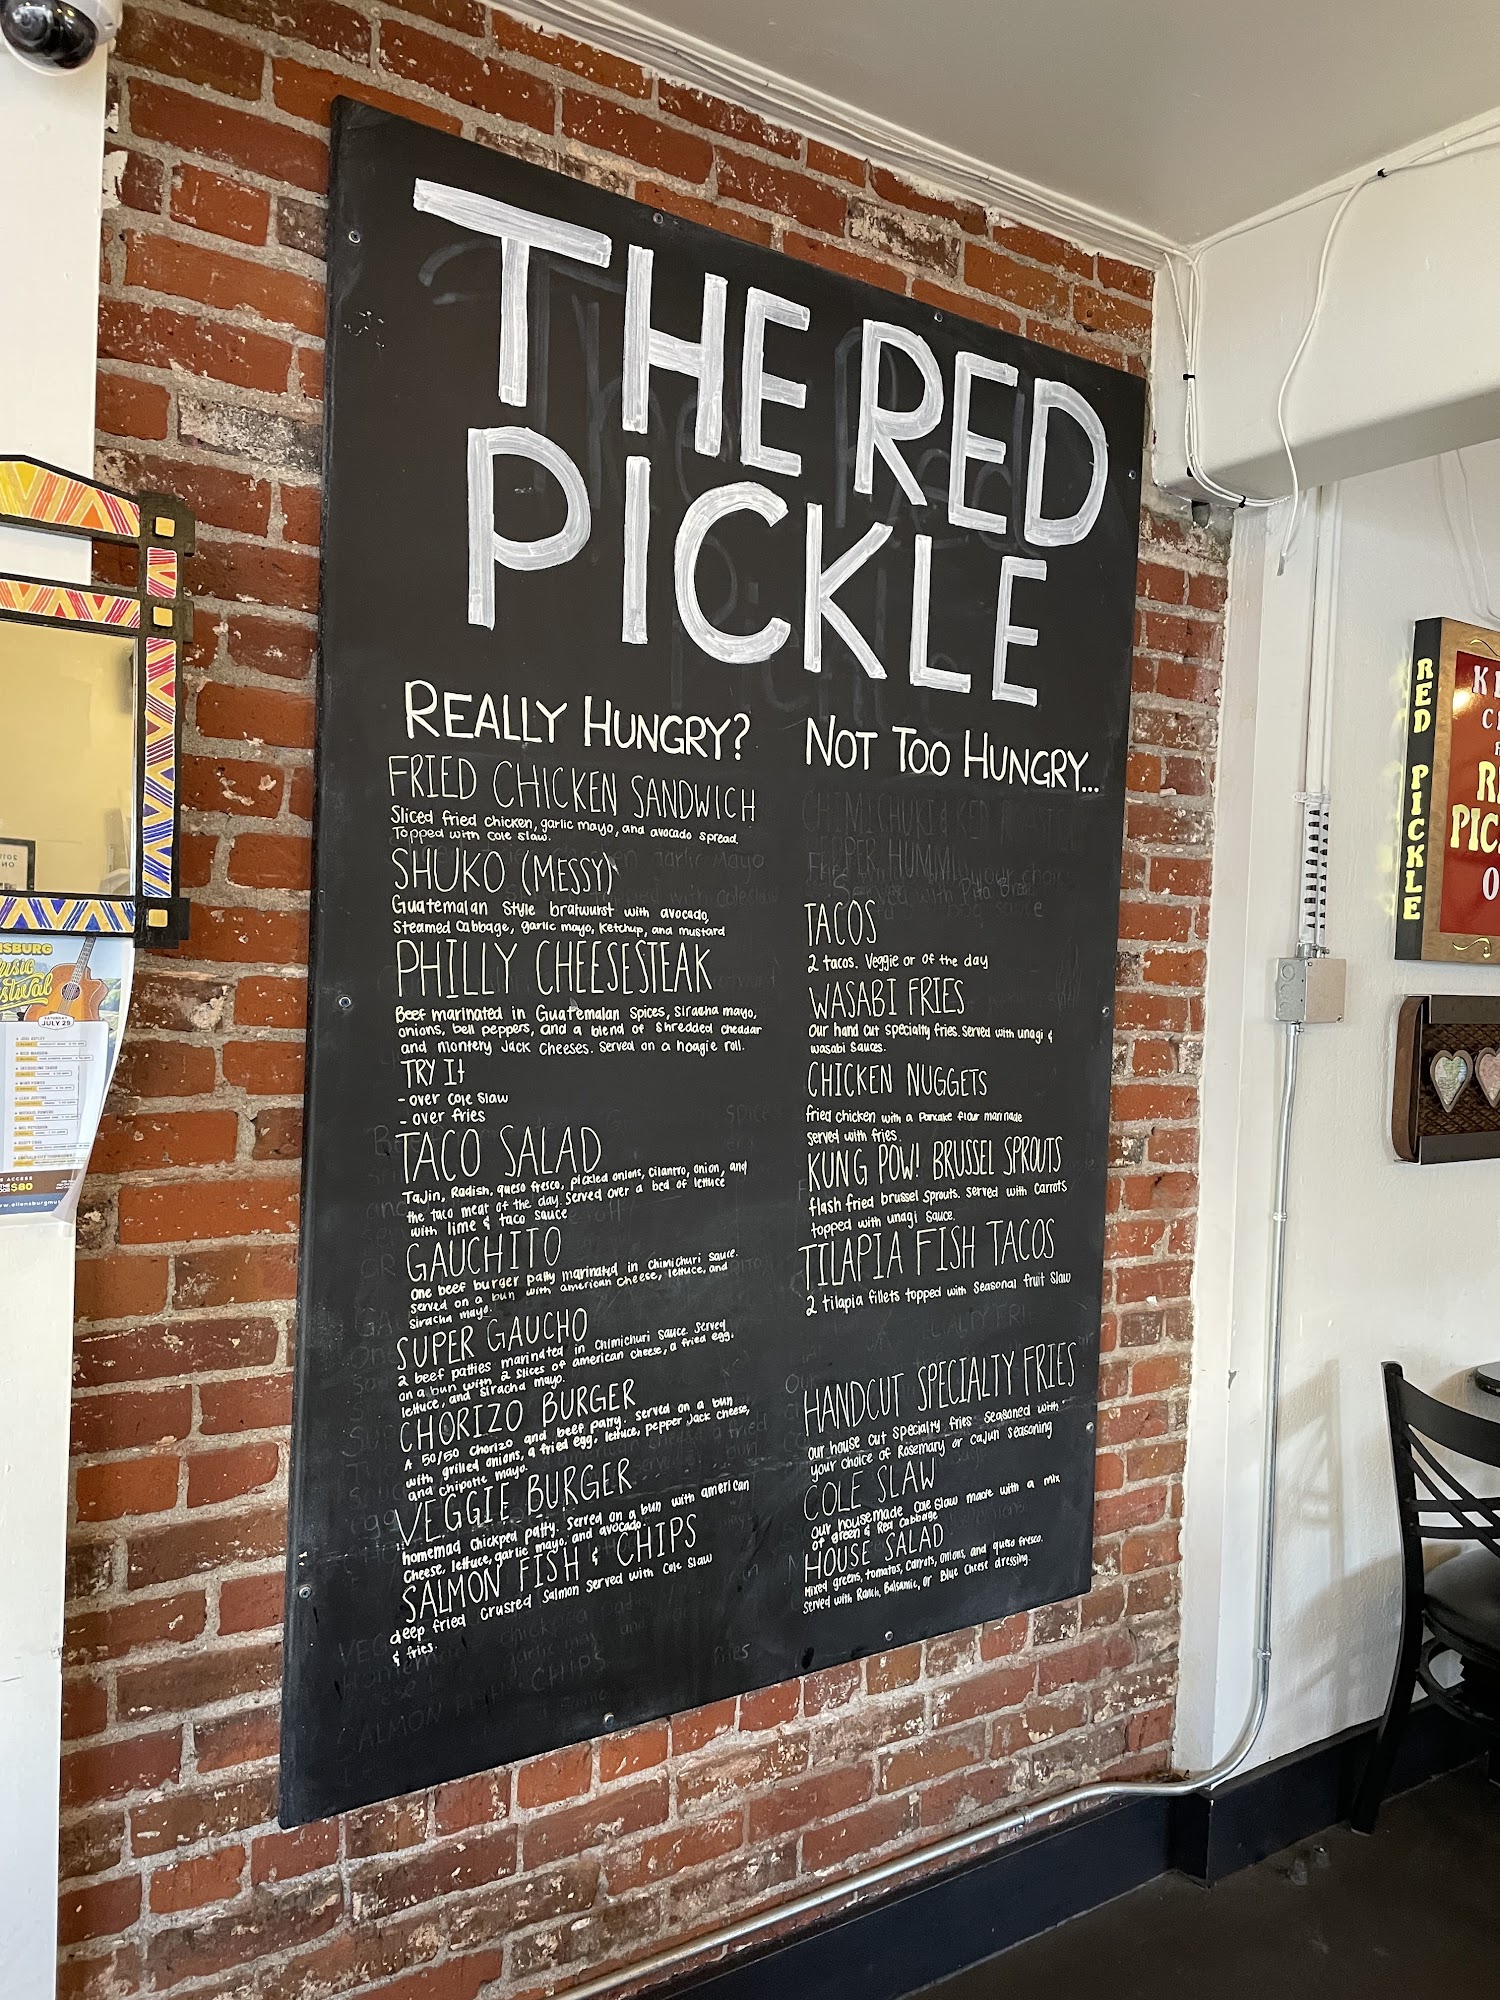 THE RED
PICKLE
REALLY HUNGRY?
FRIED CHICKEN SANDWICH
Sliced fried chicken, garlic mayo, and avocado spread.
Topped with cole slaw.
SHUKO (MESSY)
Guatemalan Style bratwurst with avocado,
Steamed cabbage, garlic mayo, ketchup, and mustard
PHILLY CHEESESTEAK
Beef marinated in Guatemalan Spices, Siracha mayo,
onions, bell peppers, and a blend of shredded cheddar
and montery Jack Cheeses. Served on a hoagie roll.
TRY It
- over cole slaw
- over fries
TACO SALAD
Tajin, Radish, queso fresco, pickled onions, cilantro, onion, and
the taco meat of the day. Served over a bed of lettuce
with lime & taco sauce
GAUCHITO
One beef burger patty marinated in Chimichuri Sauce.
Served on a bun with american cheese, lettuce, and
Siracha mayo.
SUPER GAUCHO
2 beef patties marinated in Chimichuri Sauce. Served
on a bun with 2 slices of american cheese, a fried egg,
lettuce, and Siracha mayo.
CHORIZO BURGER
A 50/50 chorizo and beef patty. Served on a bun
with grilled onions, a fried egg, lettuce, pepper Jack cheese,
and chipotle mayo.
VEGGIE BURGER
homemad chickped patty. Served on a bun with american
Cheese, lettuce, garlic mayo, and avocado.
SALMON FISH & CHIPS
deep fried crusted Salmon served with Cole Slaw
& fries.
NOT TOO HUNGRY...
TACOS
2 tacos. Veggie or of the day
WASABI FRIES
our hand cut specialty fries. Served with unagi &
wasabi sauces.
CHICKEN NUGGETS
fried chicken with a Pancake flour marinade
Served with fries.
KUNG POW! BRUSSEL SPROUTS
flash fried brussel sprouts. Served with carrots
topped with unagi sauce.
TILAPIA FISH TACOS
2 tilapia fillets topped with Seasonal fruit Slaw
HANDCUT SPECIALTY FRIES
our house cut specialty fries seasoned with
your choice of Rosemary or Cajun Seasoning
COLE SLAW
our housemade Cole Slaw made with a mix
of green & Red Cabbage
HOUSE SALAD
Mixed greens, tomatos, carrots, onions, and queso fresco.
Served with Ranch, Balsamic, or Blue Cheese dressing.
RED PICKLE
JULY 29
$80